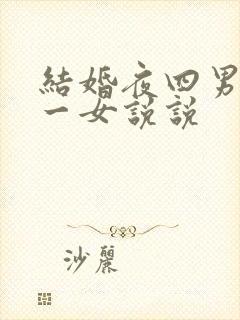 結婚夜四男
一女說說
沙麗